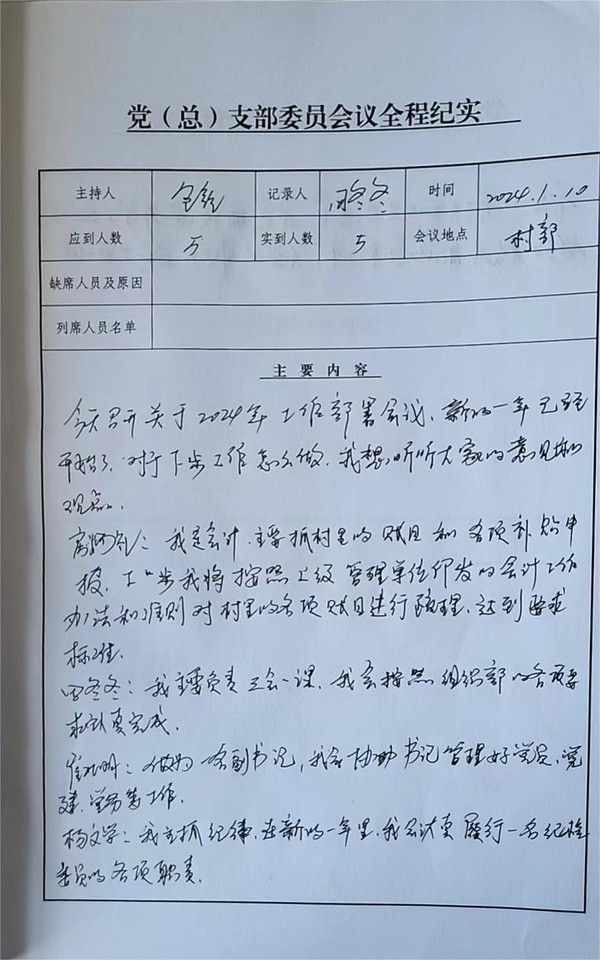 党（总）支部委员会议全程纪实
主持人 记录人 冬冬 时间 2024.1.10
应到人数 5 实到人数 5 会议地点 村部
缺席人员及原因
列席人员名单
主要内容
今天召开关于2024年工作部署会议，新的一年已经
开始了，对于下步工作怎么做，我想听听大家的意见和
观点。
我是会计，主要抓村里的账目和各项补贴申
报，下一步我将按照上级管理单位印发的会计工作
办法和准则对村里的各项账目进行梳理，达到要求
标准。
田冬冬：我主要负责三会一课，我会按照组织部的各项要
求认真完成。
做为一名副书记，我会协助书记管理好党员、党
建、党务等工作。
杨文学：我主抓纪律，在新的一年里，我会认真履行一名纪检
委员的各项职责。